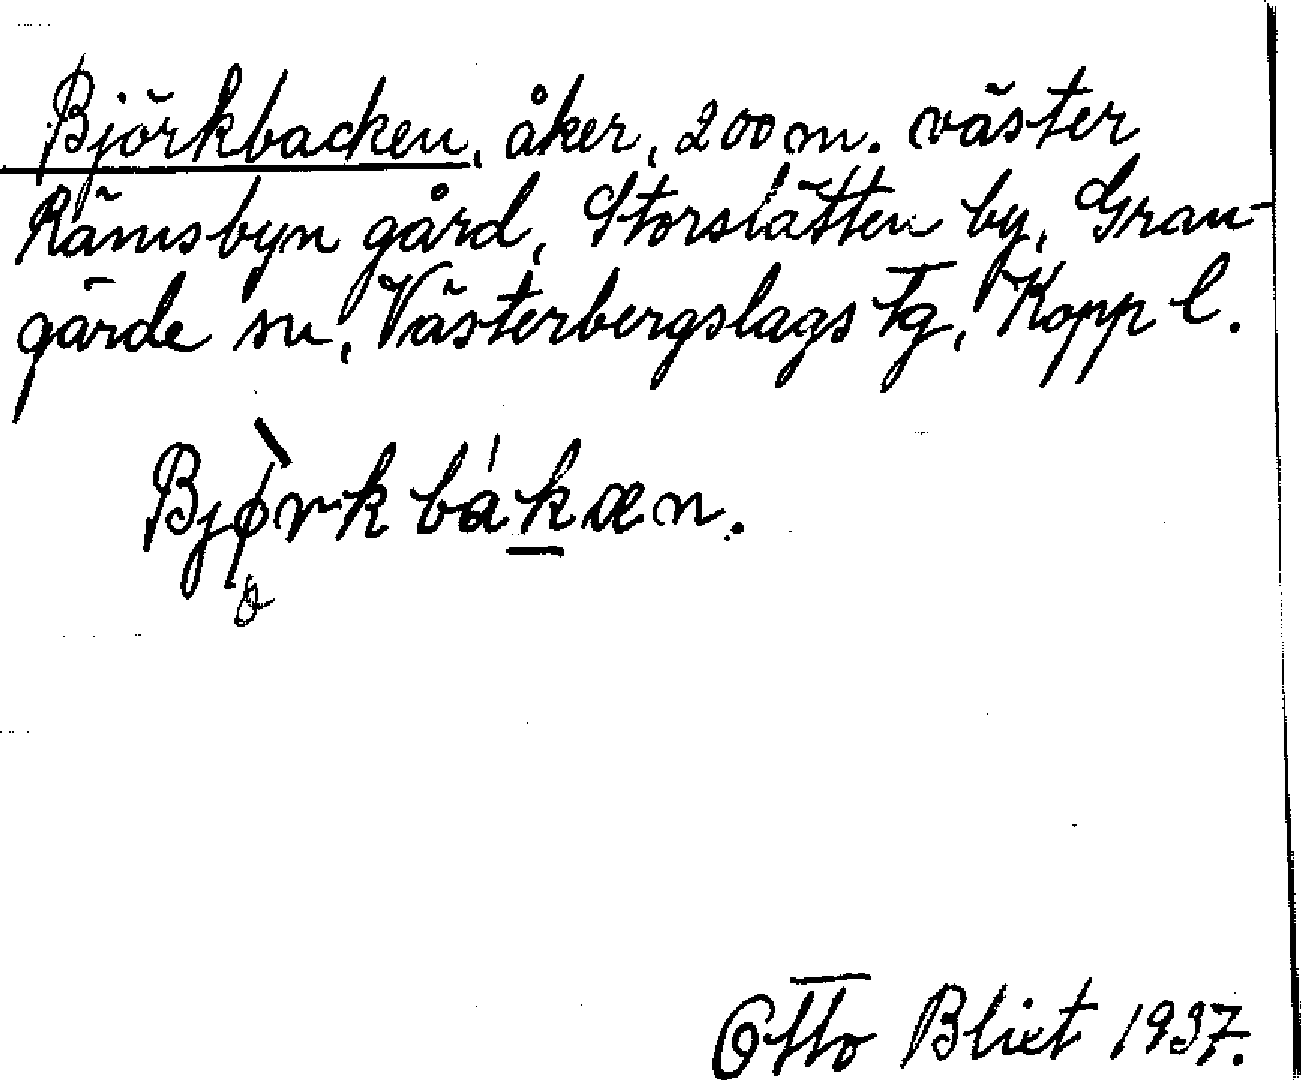 Björkbacken, åker, 200 m. väster
Rämsbyn gård, Storslätten by, Gran-
gärde sn, Västerbergslags Tg, Kopp l.
Bjø̀rk bákæn.
o
Otto Blixt 1937.